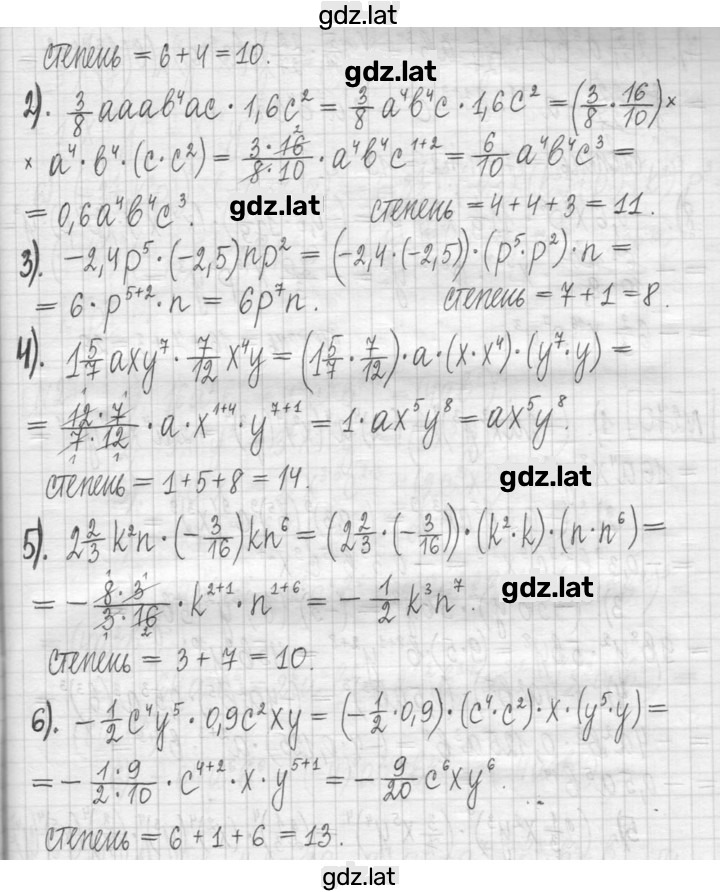 gdz.lat
степень = 6 + 4 = 10.
gdz.lat
2). 3/8 aaab⁴ac · 1,6c² = 3/8 a⁴b⁴c · 1,6c² = (3/8 · 16/10) ×
× a⁴ · b⁴ · (c · c²) = 3 · 16/8 · 10 · a⁴b⁴c¹⁺² = 6/10 a⁴b⁴c³ =
= 0,6a⁴b⁴c³. gdz.lat степень = 4 + 4 + 3 = 11.
3). -2,4p⁵ · (-2,5)np² = (-2,4 · (-2,5)) · (p⁵ · p²) · n =
= 6 · p⁵⁺² · n = 6p⁷n. степень = 7 + 1 = 8.
4). 1 5/7 axy⁷ · 7/12 x⁴y = (1 5/7 · 7/12) · a · (x · x⁴) · (y⁷ · y) =
= 12 · 7/7 · 12 · a · x¹⁺⁴ · y⁷⁺¹ = 1 · ax⁵y⁸ = ax⁵y⁸.
степень = 1 + 5 + 8 = 14. gdz.lat
5). 2 2/3 k²n · (-3/16)kn⁶ = (2 2/3 · (-3/16)) · (k² · k) · (n · n⁶) =
= - 8 · 3/3 · 16 · k²⁺¹ · n¹⁺⁶ = - 1/2 k³n⁷. gdz.lat
степень = 3 + 7 = 10.
6). - 1/2 c⁴y⁵ · 0,9c²xy = (- 1/2 · 0,9) · (c⁴ · c²) · x · (y⁵ · y) =
= - 1 · 9/2 · 10 · c⁴⁺² · x · y⁵⁺¹ = - 9/20 c⁶xy⁶.
степень = 6 + 1 + 6 = 13.
gdz.lat